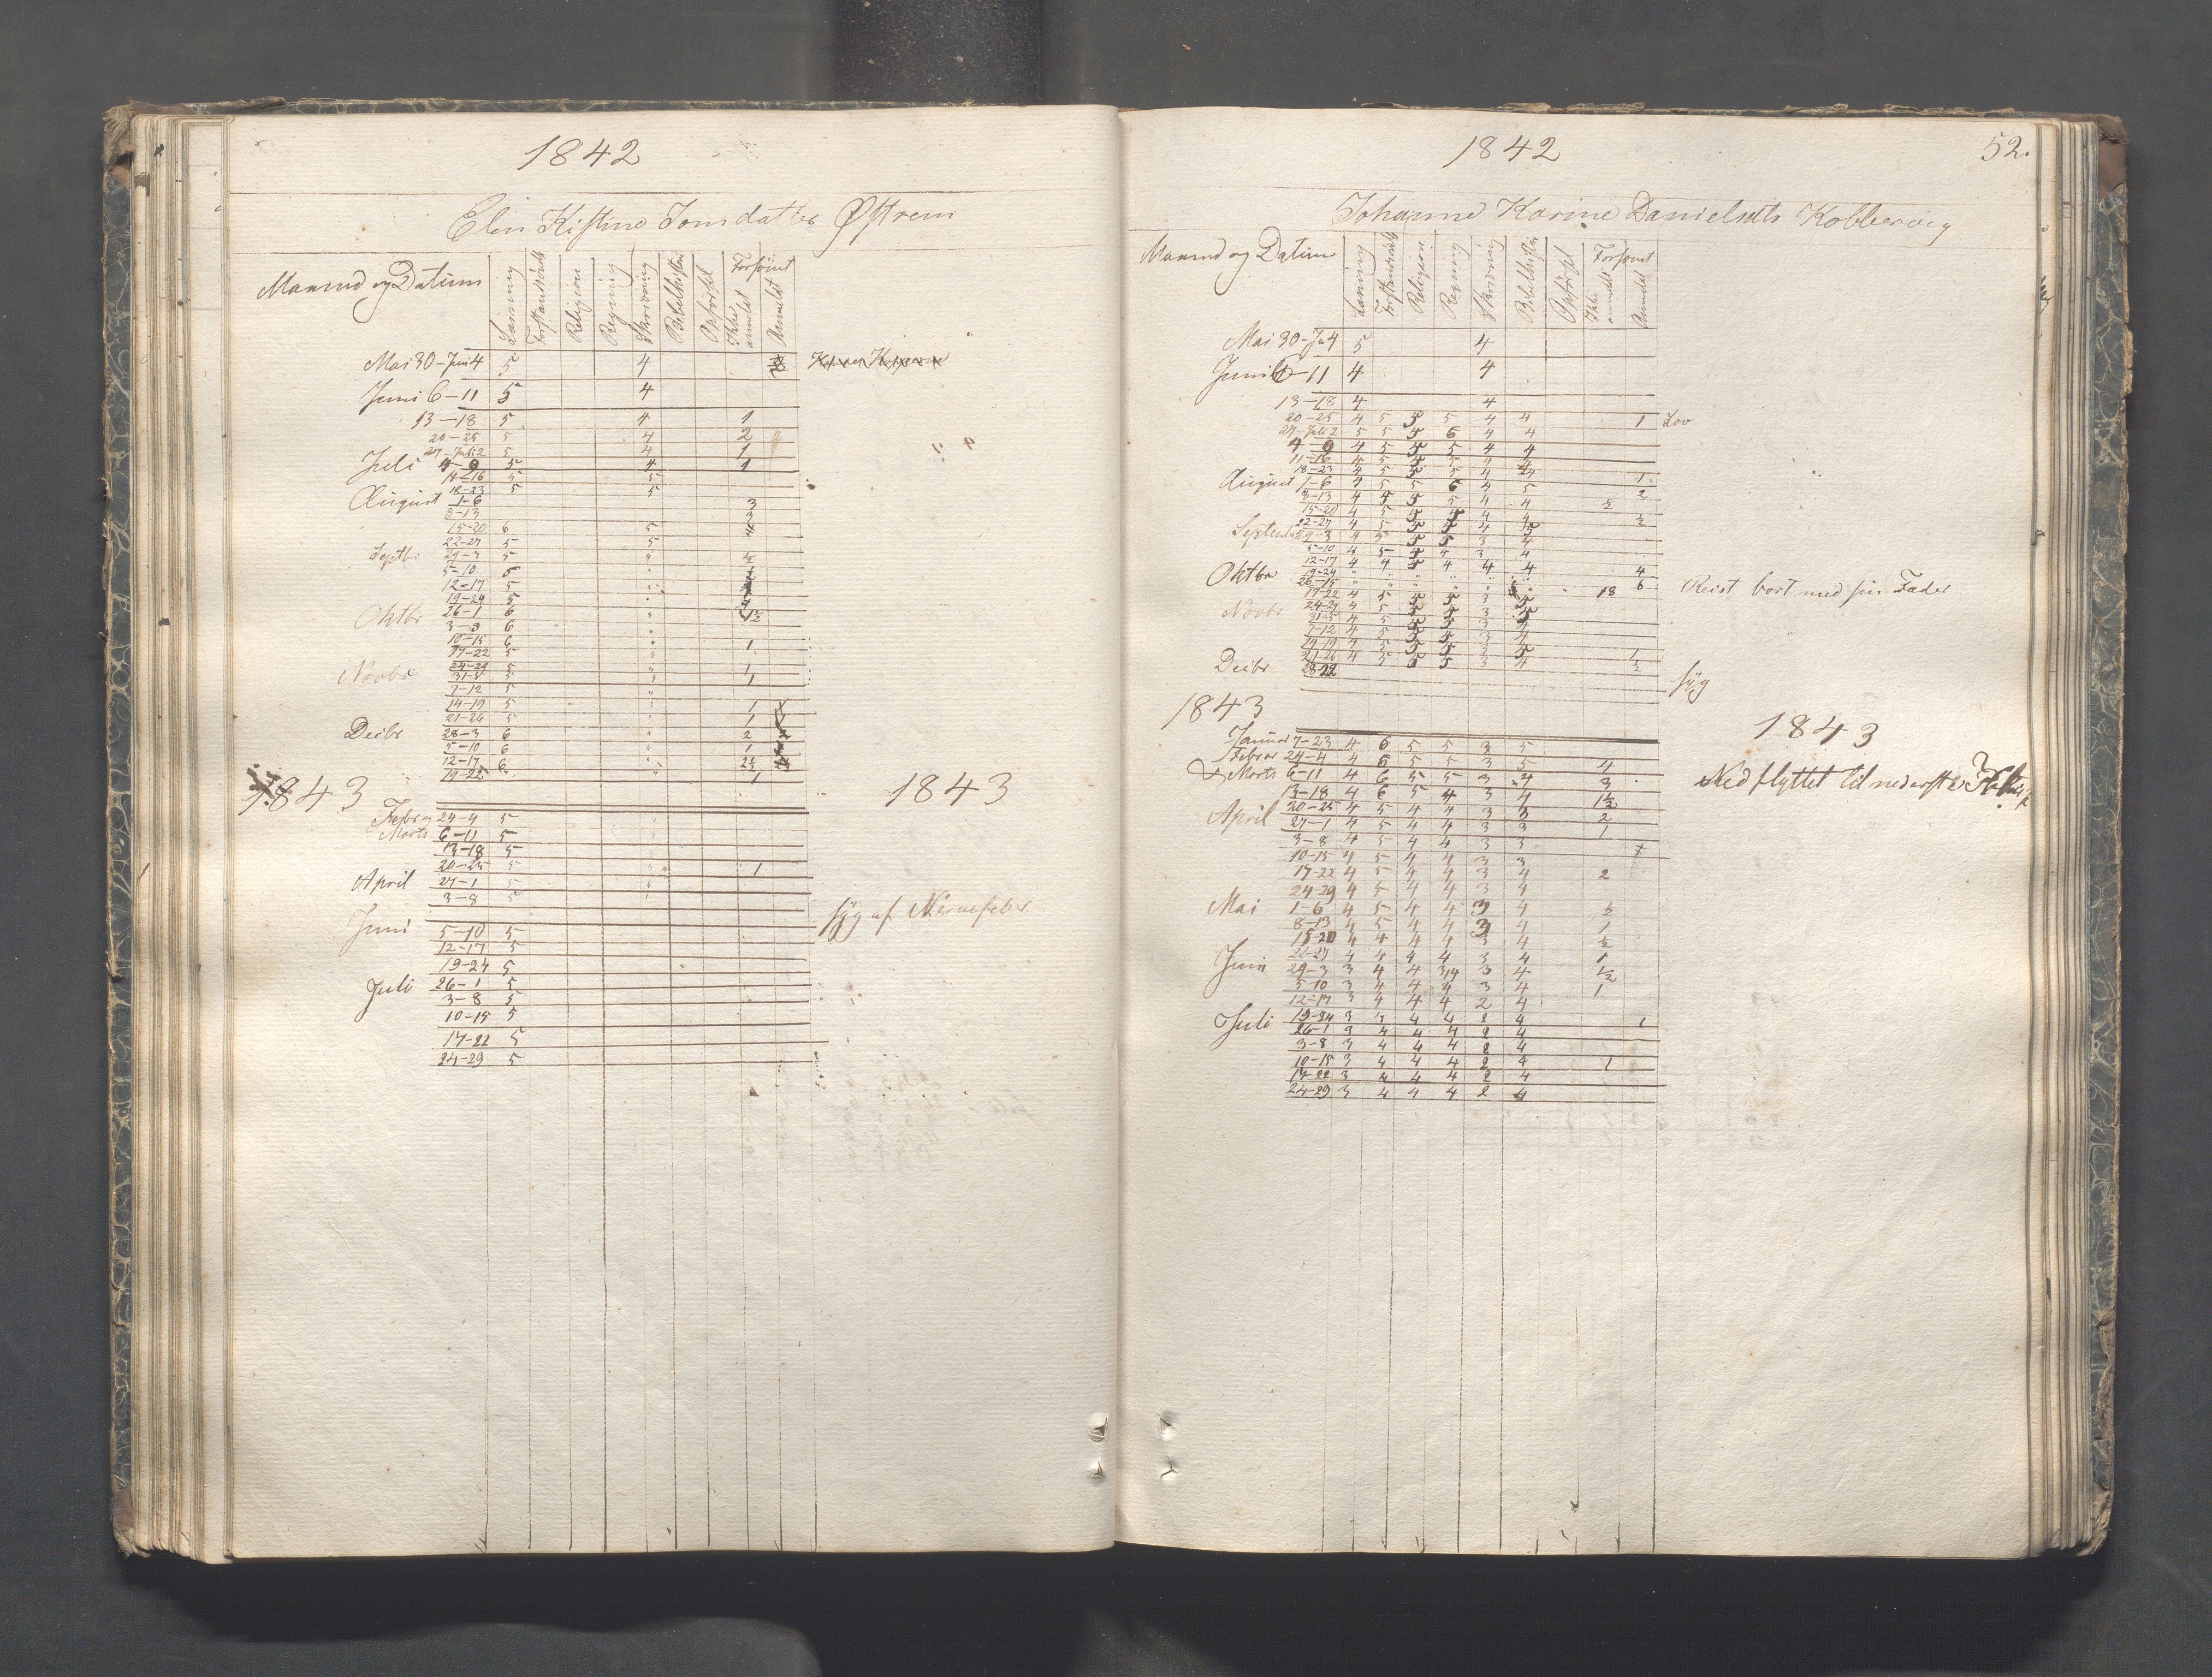 1842
Elen Kistine Jonsdatter Østrem
Maaned og Datum Læsning Forstandsøvels Religion Regning Skrivning Bibelhistorie Opførsel Forsømt Ikke anmeldt Anmeldt
Mai 30 - Juni 4 5 4
Juni 6-11 5 4
13-18 5 4 1
20-25 5 4 2
27-Juli 2 5 4 1
Juli 4-9 5 4 1
11-16 5 5
18-23 5 5
August 1-6 3
8-13 3
15-20 6 5 4
22-27 5 5
Septbr 29-3 5 "
5-10 5
12-17 5 "
19-24 5
Oktbr 26-1 6 " 1½
3-8 6
10-15 6 " 1
17-22 5 "
24-29 5 " 1
Novbr 31-5 5 " 1
7-12 5 "
14-19 5 " 1
21-26 5 " 1
Decbr 28-3 6 " 2
5-10 6 " 1
12-17 6 " 2½
19-22 6 " 1
1843 1843
Februar 24-4 5
Marts 6-11 5
13-18 5
20-25 5 " 1
April 27-1 5 "
3-8 5 "
syg af Nervefeber
Juni 5-10 5
12-17 5
19-24 5
Juli 26-1 5
3-8 5
10-15 5
17-22 5
24-29 5
1842 52.
Johanne Karine Danielsdtr Kobbervig
Maaned og Datum Læsning Forstandsøvels Religion Regning Skrivning Bibelhistorie Opførsel Forsømt Ikke anmeldt Anmeldt
Mai 30-Ju 4 5 4
Juni 6-11 4 4
13-18 4 4
20-25 4 5 5 5 4 4 1 Lov
27-Juli 2 5 5 5 6 4 4
4-9 4 5 5 5 4 4
11-16 4 5 5 5 4 4
18-23 4 5 5 5 4 4 1
August 1-6 4 5 5 6 4 5 2
8-13 4 5 5 5 4 4 ½
15-20 4 5 5 4 4 ½
22-27 4 5 5 4
29-3 4 5 5 5 3 4
5-10 4 5 5 4 3 4
12-17 4 4 5 4 4 4 4
Oktbr 19-24 " " " " " " 6
26-15 " " " " " " " 18 Reist bort med sin Fader
17-22 4 5 5 5 3 5
Novbr 24-29 4 5 5 5 3 5
31-5 4 5 5 5 3
7-12 4 5 5 5 3 4
14-19 4 5 5 5 3
21-26 4 5 5 5 3 4 ½
Decbr 28-22
syg
1843 1843
Januar 7-23 4 6 5 5 3 5
Februar 24-4 4 6 5 5 3 5 4
Marts 6-11 4 6 5 5 3 4 3 Nedflyttet til nederste
13-18 4 6 5 4 3 4 1½
20-25 4 5 4 4 3 3 2
April 27-1 4 5 4 4 3 3 1
3-8 4 5 4 4 3 3
10-15 4 5 4 4 3 3
17-22 4 5 4 4 3 4 2
24-29 4 5 4 4 3 4
Mai 1-6 4 5 4 4 3 4 ½
8-13 4 5 4 4 3 4 1
15-20 4 4 4 4 3 4 ½
22-27 4 4 4 4 3 4 1
Juni 29-3 3 4 4 3/4 3 4 ½
5-10 3 4 4 4 3 4 1
12-17 3 4 4 4 2 4
19-24 3 3 4 4 2 4 1
Juli 26-1 3 4 4 4 2 4
3-8 3 4 4 4 2 4
10-15 3 4 4 4 2 4 1
17-22 3 4 4 4 2 4
24-29 3 4 4 4 2 4